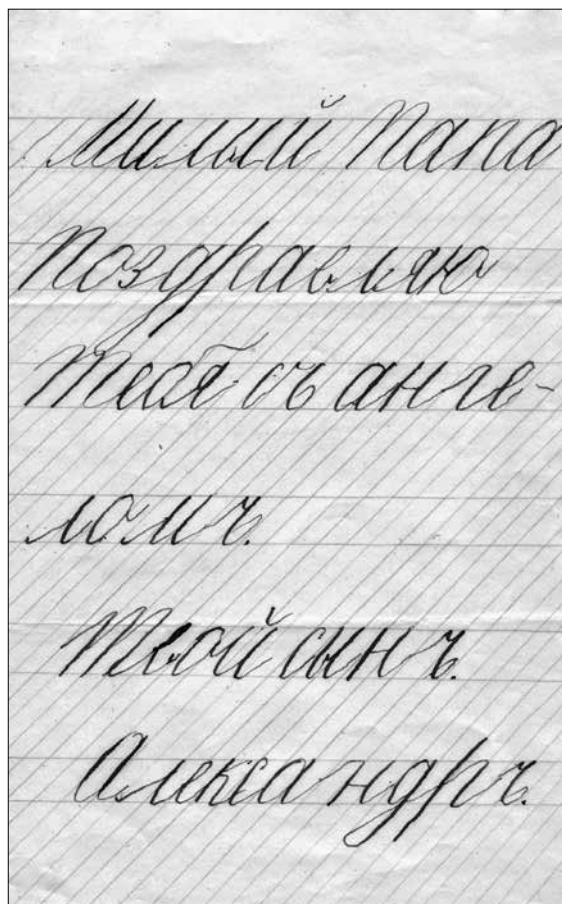 Милый Папа
Поздравляю
Тебя съ анге-
ломъ.
Твой сынъ.
Александръ.